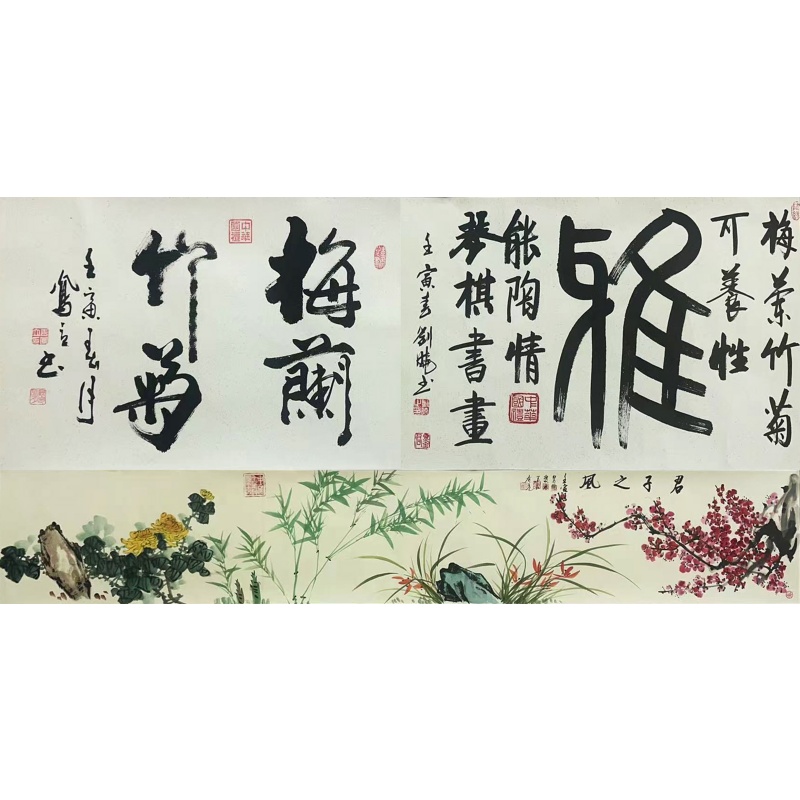 梅蘭竹菊
可養性
雅
能陶情
琴棋書畫
壬寅春劉曉書
中華
國禮
梅蘭
竹菊
中華
國禮
壬寅春月
鳳言書
君子之風